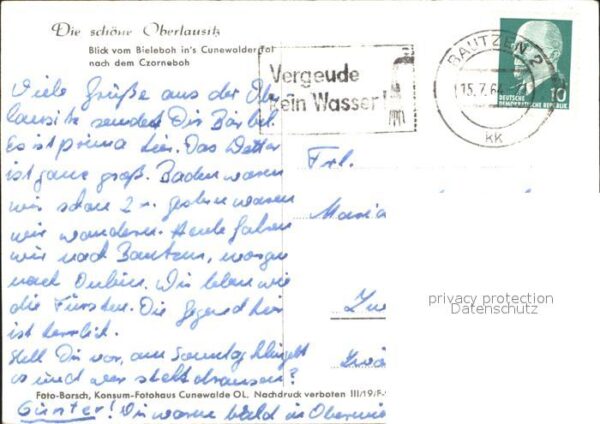 Die schöne Oberlausitz
Blick vom Bieleboh in's Cunewalder Tal
nach dem Czorneboh
Vergeude
kein Wasser!
BAUTZEN 2
15.7.64
kk
10
DEUTSCHE
DEMOKRATISCHE REPUBLIK
Viele Grüße aus der Ober
lausitz sendet Dir Bärbel.
Es ist prima hier. Das Wetter
ist ganz groß. Baden waren
wir schon 2 x. gestern waren
wir wandern. Heute fahren
wir nach Bautzen, morgen
nach Oybin. Wir leben wie
die Fürsten. Die Gegend hier
ist herrlich.
Stell Dir vor, am Sonntag klingelt
es und wer steht draussen?
Günter! Wir waren bald in
Frl.
Maria
Zw
Zwi
privacy protection
Datenschutz
Foto-Barsch, Konsum-Fotohaus Cunewalde OL. Nachdruck verboten III/19/F-